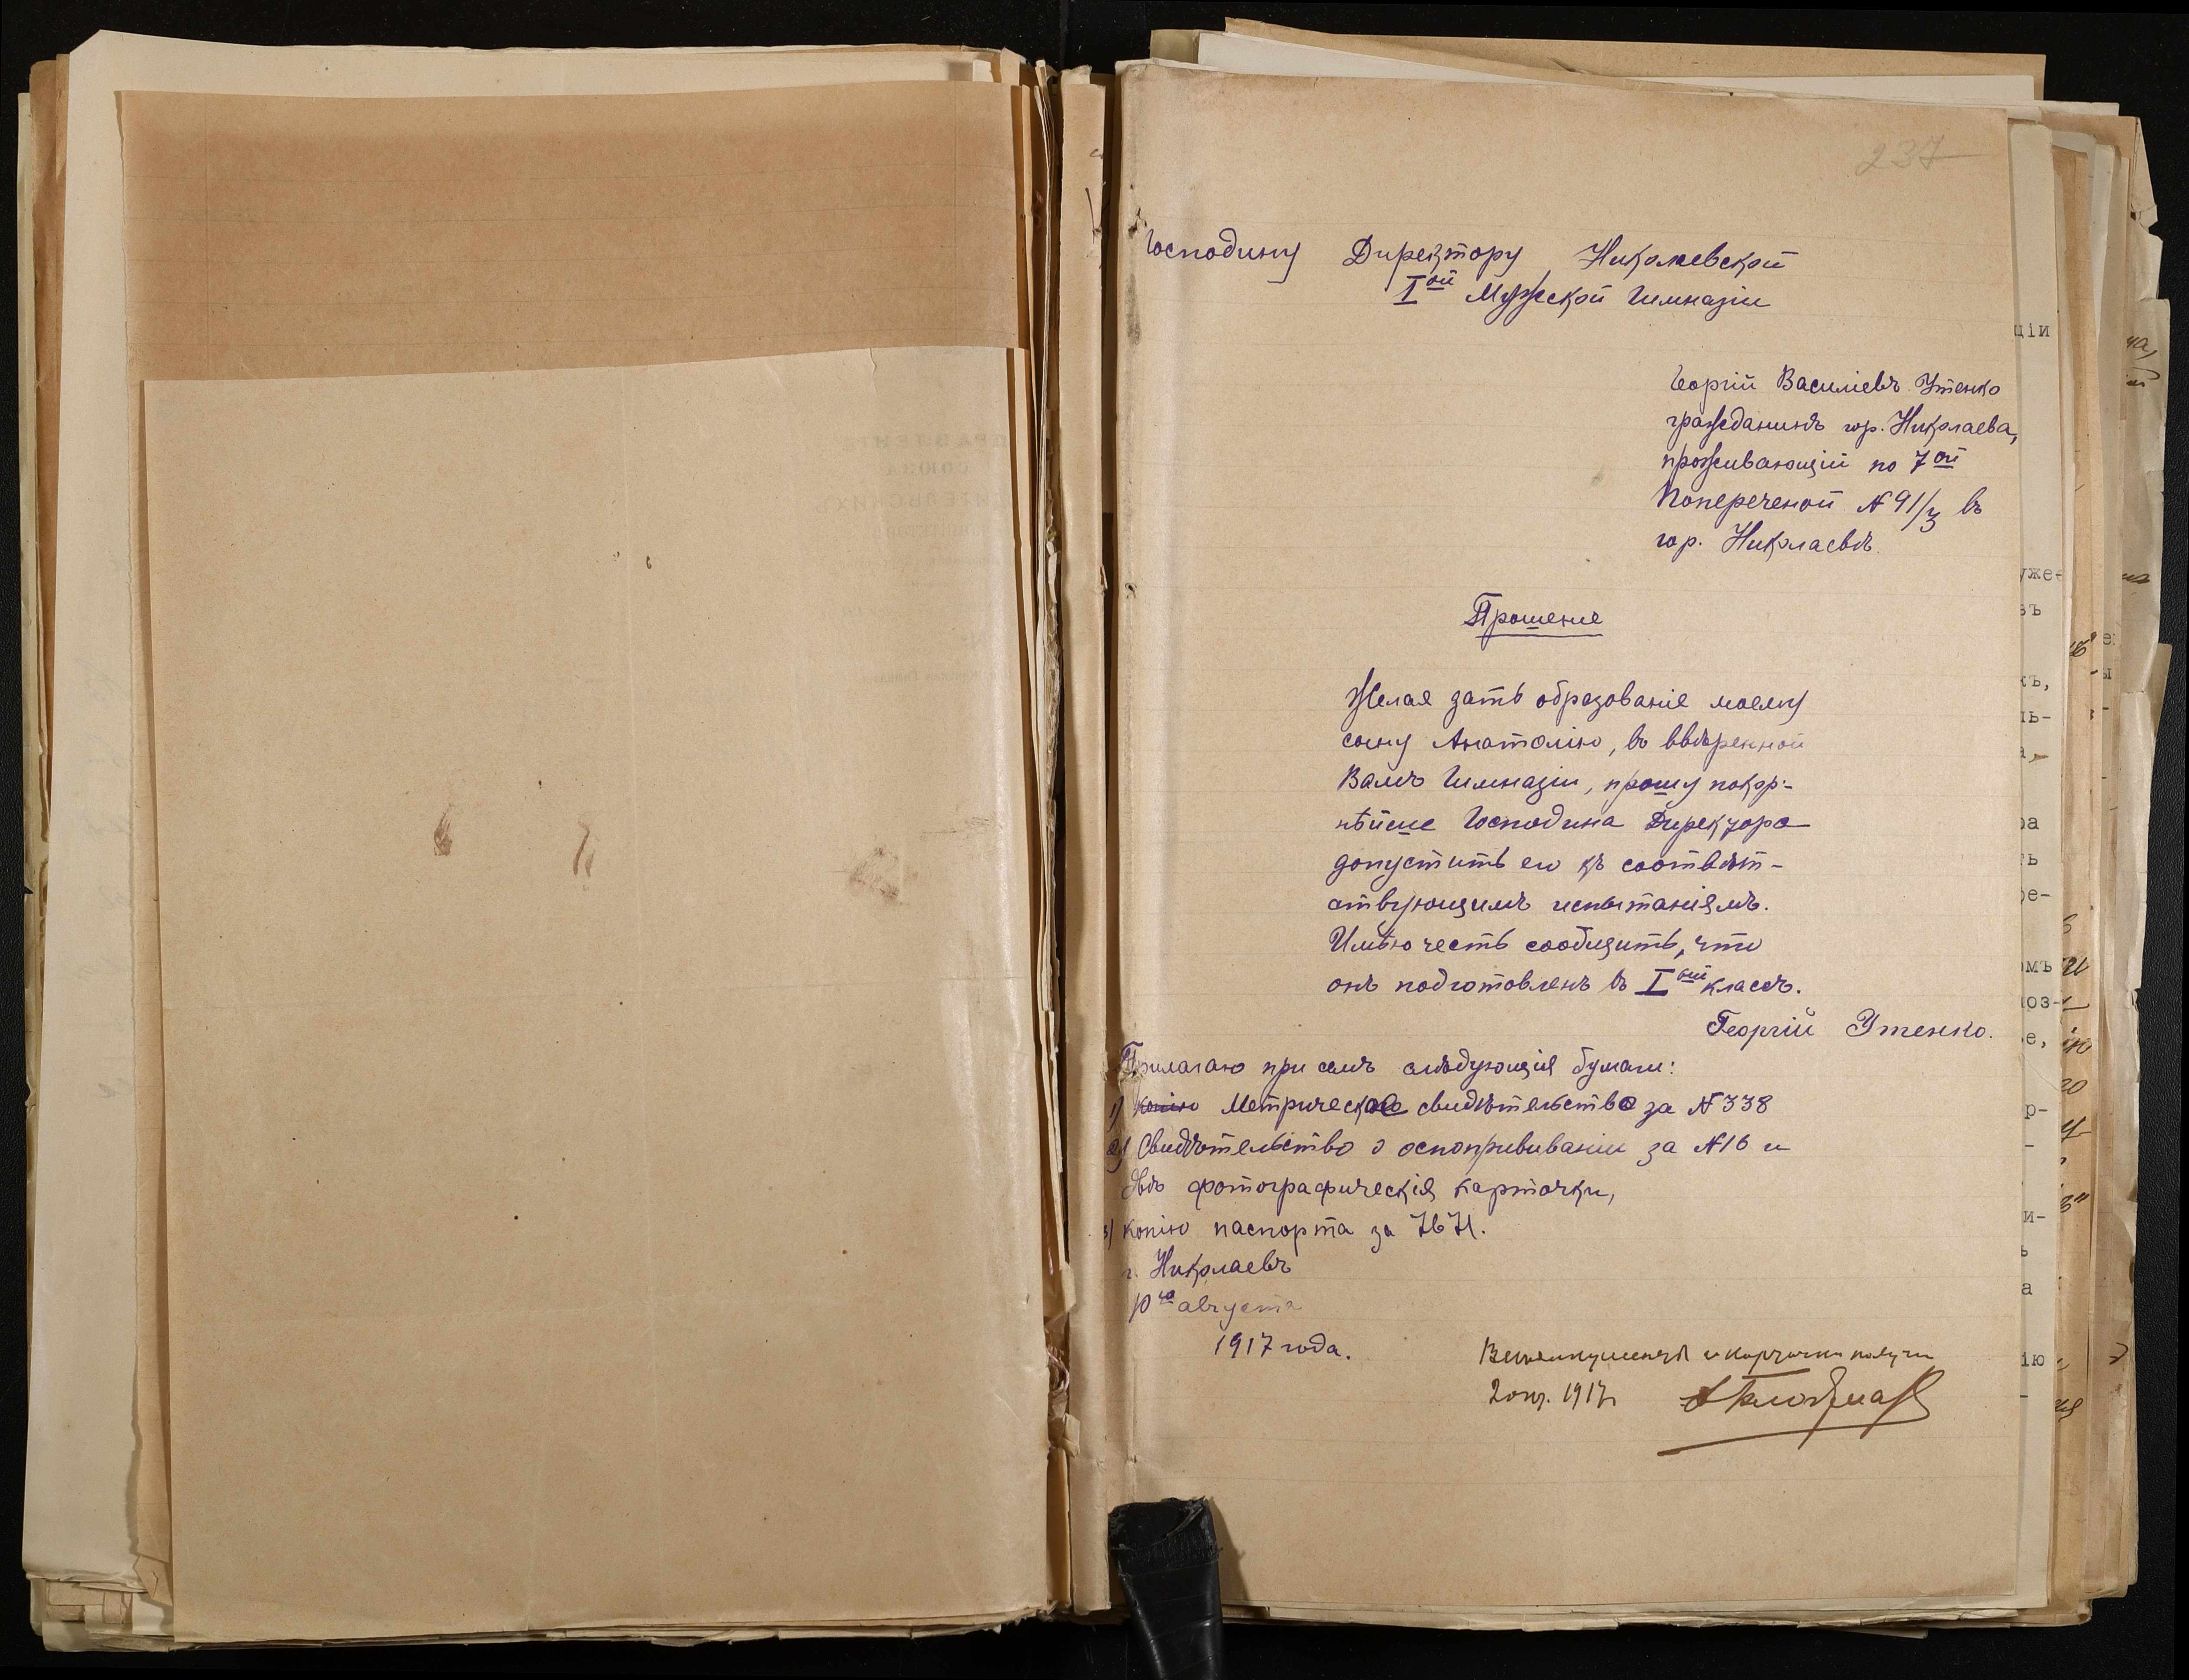 237
Господину Директору Николаевской
Iой Мужской Гимназіи
Георгій Василіевъ Утенко
гражданинъ гор. Николаева,
проживающій по 7ой
Попереченой № 91/3 въ
гор. Николаевѣ.
Прошеніе
Желая дать образованіе моему
сыну Анатолію, въ ввѣренной
Вамъ Гимназіи, прошу покор-
нѣйше Господина Директора
допустить его къ соотвѣт-
ствующимъ испытаніямъ.
Имѣю честь сообщить, что
онъ подготовленъ въ Iый классъ.
Георгій Утенко.
Прилагаю при семъ слѣдующія бумаги:
1) копію Метрическое свидѣтельство за № 338
2) Свидѣтельство о оспопрививаніи за № 16 и
двѣ фотографическія карточки,
3) копію паспорта за 7671.
г. Николаевъ
10го августа
1917 года.
и карточки получи
2 окт. 1917
ціи
уже-
въ
къ,
нь-
ра
ть
ре-
омъ
е,
р-
и-
ь
а
ію